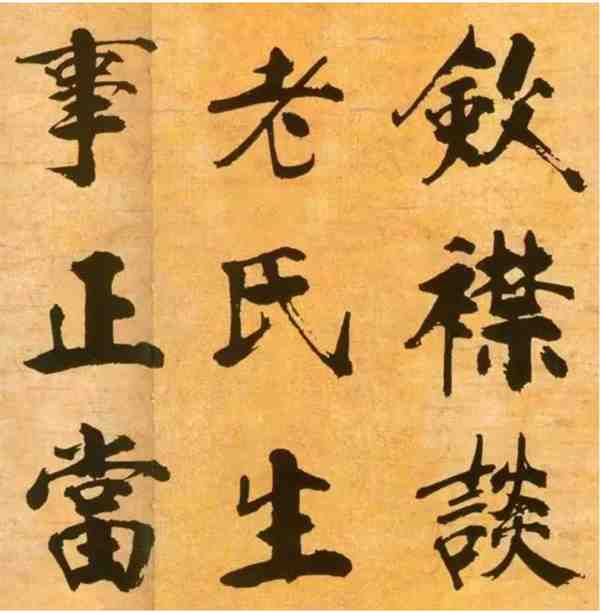 歛襟談
老氏生
事正當